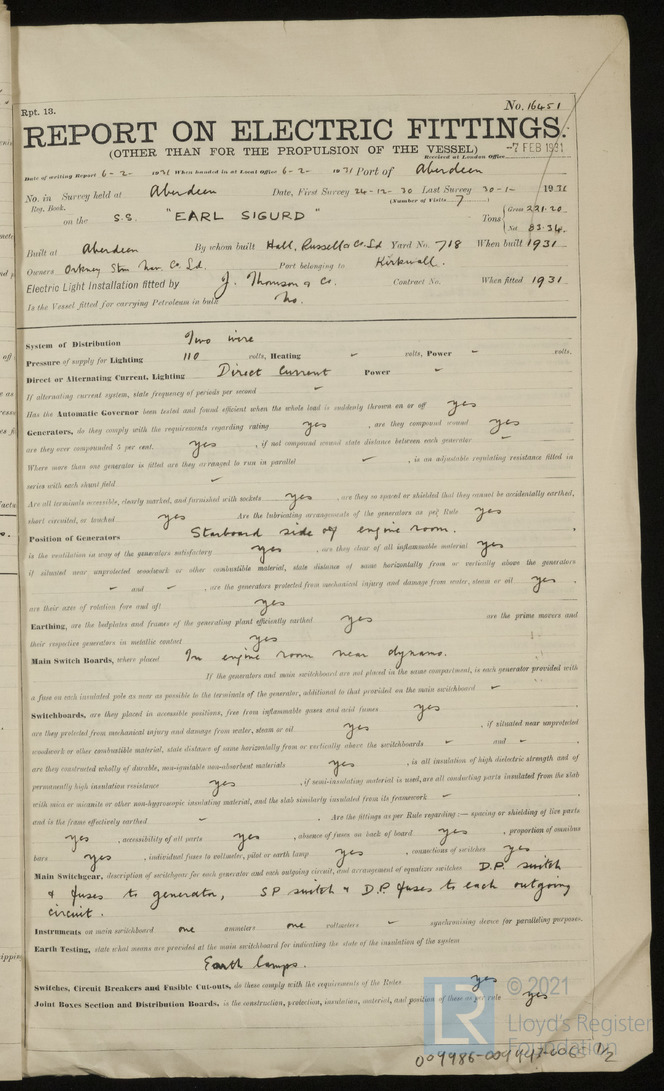 Rpt. 13.
No. 16451
REPORT ON ELECTRIC FITTINGS.
(OTHER THAN FOR THE PROPULSION OF THE VESSEL)
Received at London Office
-7 FEB 1931
Date of writing Report 6-2- 1931 When handed in at Local Office 6-2- 1931 Port of Aberdeen
No. in Survey held at Aberdeen Date, First Survey 24-12-30 Last Survey 30-1- 1931
Reg. Book. (Number of Visits 7)
on the S.S. "EARL SIGURD" Tons { Gross 221.20
Net 83.34
Built at Aberdeen By whom built Hall, Russell & Co. Ld Yard No. 718 When built 1931
Owners Orkney Stm Nav. Co. Ld. Port belonging to Kirkwall.
Electric Light Installation fitted by J. Thomson & Co. Contract No. When fitted 1931
Is the Vessel fitted for carrying Petroleum in bulk No.
System of Distribution Two wire
Pressure of supply for Lighting 110 volts, Heating - volts, Power - volts.
Direct or Alternating Current, Lighting Direct Current Power -
If alternating current system, state frequency of periods per second -
Has the Automatic Governor been tested and found efficient when the whole load is suddenly thrown on or off yes
Generators, do they comply with the requirements regarding rating yes, are they compound wound yes
are they over compounded 5 per cent. yes, if not compound wound state distance between each generator -
Where more than one generator is fitted are they arranged to run in parallel -, is an adjustable regulating resistance fitted in
series with each shunt field -
Are all terminals accessible, clearly marked, and furnished with sockets yes, are they so spaced or shielded that they cannot be accidentally earthed,
short circuited, or touched yes Are the lubricating arrangements of the generators as per Rule yes
Position of Generators Starboard side of engine room.
is the ventilation in way of the generators satisfactory yes, are they clear of all inflammable material yes
if situated near unprotected woodwork or other combustible material, state distance of same horizontally from or vertically above the generators
- and -, are the generators protected from mechanical injury and damage from water, steam or oil yes.
are their axes of rotation fore and aft yes
Earthing, are the bedplates and frames of the generating plant efficiently earthed yes are the prime movers and
their respective generators in metallic contact yes
Main Switch Boards, where placed In engine room near dynamo.
If the generators and main switchboard are not placed in the same compartment, is each generator provided with
a fuse on each insulated pole as near as possible to the terminals of the generator, additional to that provided on the main switchboard -
Switchboards, are they placed in accessible positions, free from inflammable gases and acid fumes yes
are they protected from mechanical injury and damage from water, steam or oil yes, if situated near unprotected
woodwork or other combustible material, state distance of same horizontally from or vertically above the switchboards - and -.
are they constructed wholly of durable, non-ignitable non-absorbent materials yes, is all insulation of high dielectric strength and of
permanently high insulation resistance yes, if semi-insulating material is used, are all conducting parts insulated from the slab
with mica or micanite or other non-hygroscopic insulating material, and the slab similarly insulated from its framework -
and is the frame effectively earthed -. Are the fittings as per Rule regarding:— spacing or shielding of live parts
yes, accessibility of all parts yes, absence of fuses on back of board yes, proportion of omnibus
bars yes, individual fuses to voltmeter, pilot or earth lamp yes, connections of switches yes
Main Switchgear, description of switchgear for each generator and each outgoing circuit, and arrangement of equalizer switches D.P. switch
& fuses to generator, SP switch & D.P. fuses to each outgoing
circuit.
Instruments on main switchboard one ammeters one voltmeters - synchronising device for paralleling purposes.
Earth Testing, state what means are provided at the main switchboard for indicating the state of the insulation of the system
Earth lamps.
Switches, Circuit Breakers and Fusible Cut-outs, do these comply with the requirements of the Rules yes
Joint Boxes Section and Distribution Boards, is the construction, protection, insulation, material, and position of these as per rule yes
LR
© 2021
Lloyd's Register
Foundation
009986-009997-0065 1/2